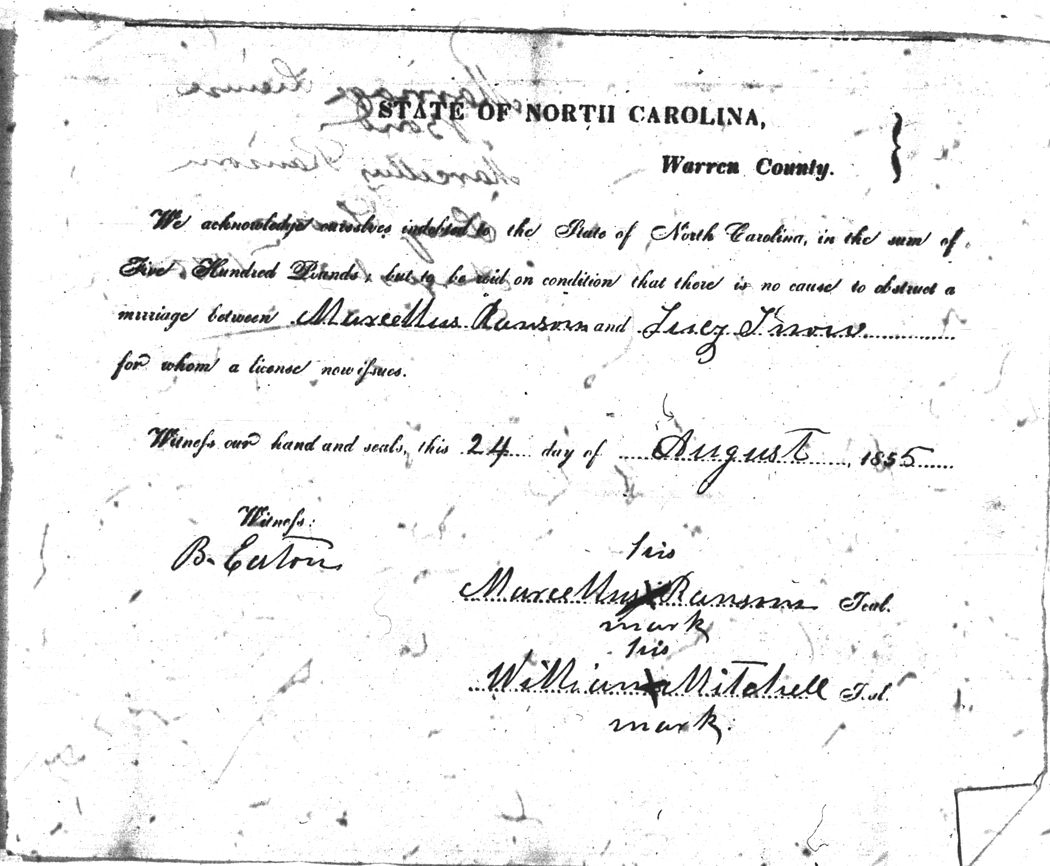 STATE OF NORTH CAROLINA,
Warren County.
We acknowledge ourselves indebted to the State of North Carolina, in the sum of
Five Hundred Pounds; but to be void on condition that there is no cause to obstruct a
marriage between Marcellus Ransom and Lucy Snow
for whom a license now issues.
Witness our hand and seals, this 24 day of August, 1855
Witness:
B. Eaton
his
Marcellus X Ransom Seal.
mark
his
William X Mitchell Seal.
mark.
Marriage License
Bond
Marcellus Ransom